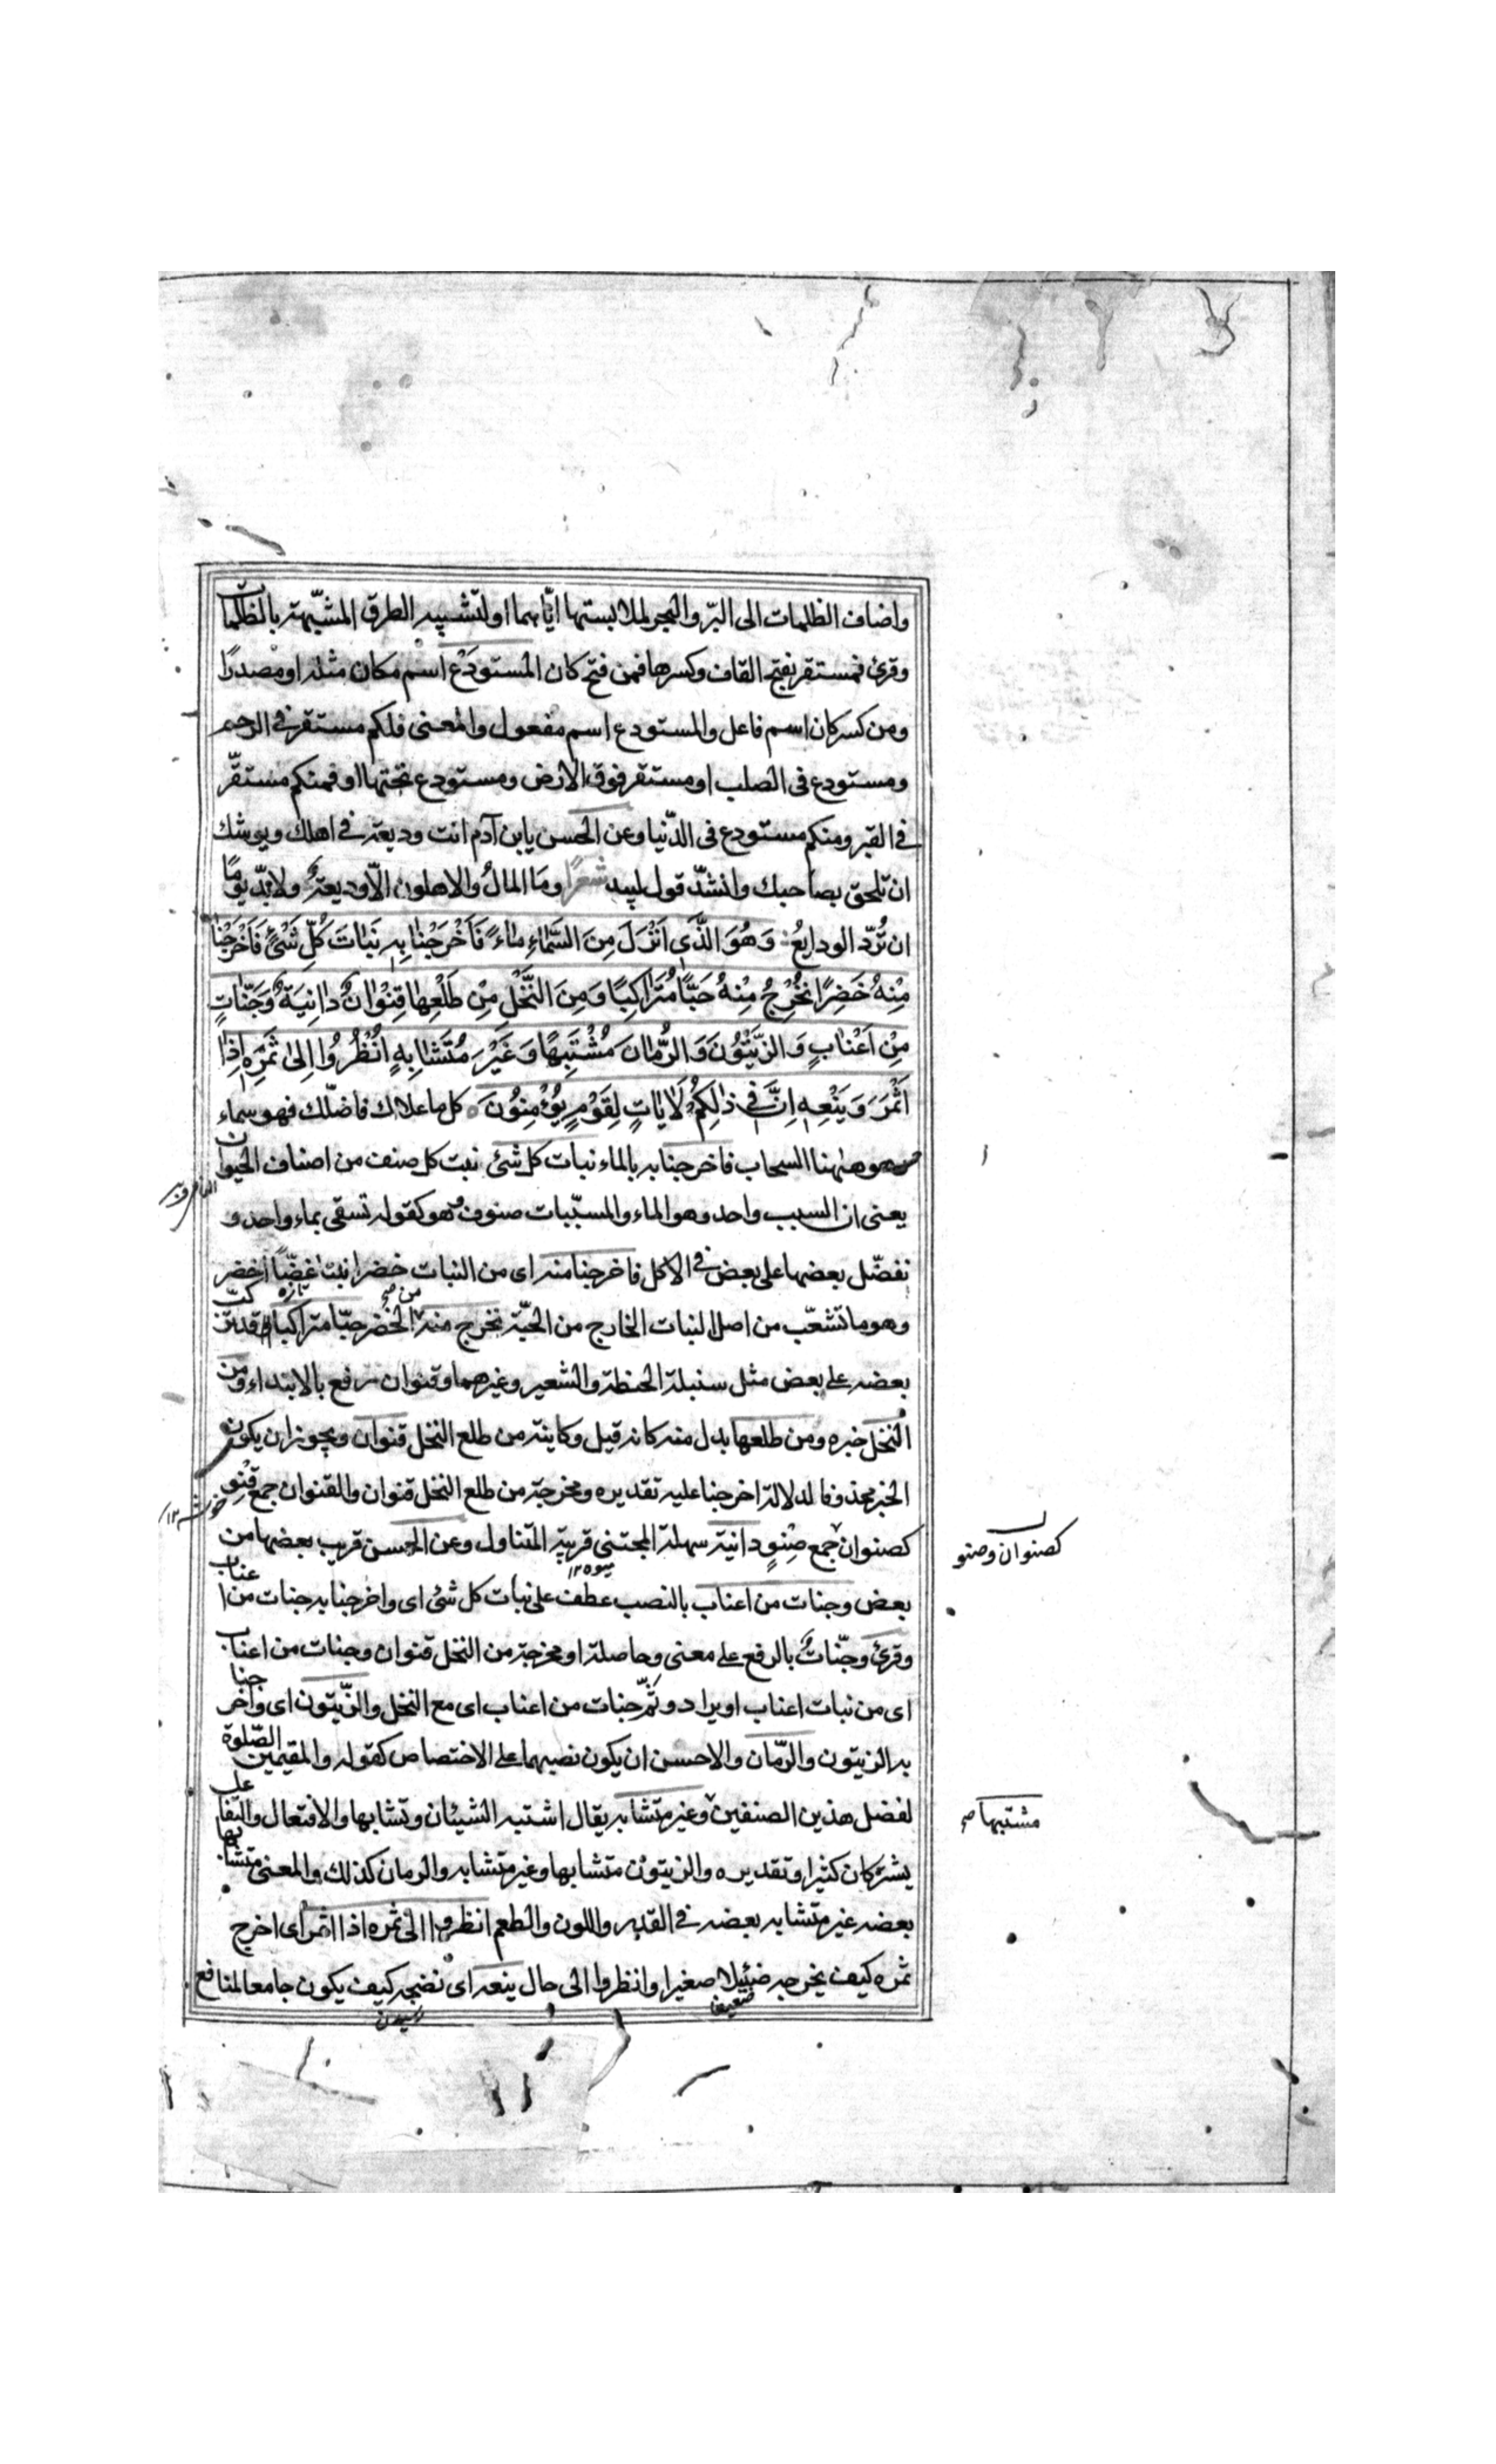 واضاف الظلمات الى البرّ والبحر لملابستها ايّاهما او لتشبيه الطرق المشبّهة بالظلمات
وقرئ فمستقر بفتح القاف وكسرها فمن فتح كان المستودَع اسم مكان مثله او مصدرًا
ومن كسر كان اسم فاعل والمستودع اسم مفعول والمعنى فلكم مستقر فى الرحم
ومستودع فى الصلب او مستقر فوق الارض ومستودع تحتها او فمنكم مستقرّ
فى القبر ومنكم مستودع فى الدّنيا وعن الحسن يابن آدم انت وديعة فى اهلك ويوشك
ان تلحق بصاحبك وانشدّ قول لبيد شعرًا ومَا المالُ والاهلون الّا وديعةٌ ولا بدّ يومًا
ان تُردّ الودايعُ وَهُوَ الَّذَى اَنْزَلَ مِنَ السَّمٰاءِ مٰاءً فَاَخْرَجْنٰا بِهِ نَبٰاتَ كُلِّ شَىْءٍ فَاَخْرَجْنٰا
مِنْهُ خَضِرًا نُخْرِجُ مِنْهُ حَبًّا مُتَرٰاكِبًا وَمِنَ النَّخْلِ مِنْ طَلْعِهٰا قِنْوٰانٌ دٰانِيَةٌ وَجَنّٰاتٍ
مِنْ اَعْنٰابٍ وَالزَّيْتُونَ وَالرُّمّٰانَ مُشْتَبِهًا وَغَيْرَ مُتَشٰابِهٍ اُنْظُرُوا اِلىٰ ثَمَرِهِ اِذٰا
اَثْمَرَ وَيَنْعِهِ اِنَّ فِى ذٰلِكُمْ لَاٰيٰاتٍ لِقَوْمٍ يُؤْمِنُونَ كل ما علاك فاضلّك فهو سماء
وهو هٰهنا السحاب فاخرجنا به بالماء نبات كل شئ نبت كل صنف من اصناف الحيوان
يعنى ان السبب واحد وهو الماء والمسبّبات صنوف وهو كقوله تسقى بماء واحد و
نفضّل بعضها على بعض فى الاكل فاخرجنا منه اى من النبات خضرا نبتا غضًّا اخضر
تازه
من صح
وهو ما تشعّب من اصل النبات الخارج من الحبّة نخرج منه الخضر حبّا متراكبا قد تركّب
بعضه على بعض مثل سنبلة الحنطة والشعير وغيرهما وقنوان رفع بالابتداء ومن
النخل خبره ومن طلعها بدل منه كانه قيل وكاينة من طلع النخل قنوان ويجوز ان يكون
الخبر محذوفا لدلالة اخرجنا عليه تقديره ومخرجة من طلع النخل قنوان والقنوان جمع قِنْو
خوشه ١٢
كصنوان جمع صِنْوٍ دانية سهلة المجتنى قريبة المتناول وعن الحسن قريب بعضها من
كصنوان وصنو
ميوه ١٢
بعض وجنات من اعناب بالنصب عطف على نبات كل شئ اى واخرجنا به جنات من اعناب
وقرئ وجنّاتٌ بالرفع على معنى وحاصلة او مخرجة من النخل قنوان وجنات من اعناب
اى من نبات اعناب او يراد وثَمّ جنات من اعناب اى مع النخل والزّيتون اى واخرجنا
به الزيتون والرّمّان والاحسن ان يكون نصبهما على الاختصاص كقوله والمقيمين الصّلوة
لفضل هذين الصنفين وغير متشابه يقال اشتبه الشيئان وتشابها والافتعال والتفاعل
مشتبها صح
يشتركان كثيرا وتقديره والزيتون متشابها وغير متشابه والرمان كذلك والمعنى متشابها
بعضه غير متشابه بعضه فى القدر واللون والطعم انظروا الى ثمره اذا اثمر اى اخرج
ثمره كيف يخرجه ضئيلا صغيرا وانظروا الى حال ينعه اى نضجه كيف يكون جامعا لمنافع
ضعيفا
رسيدن